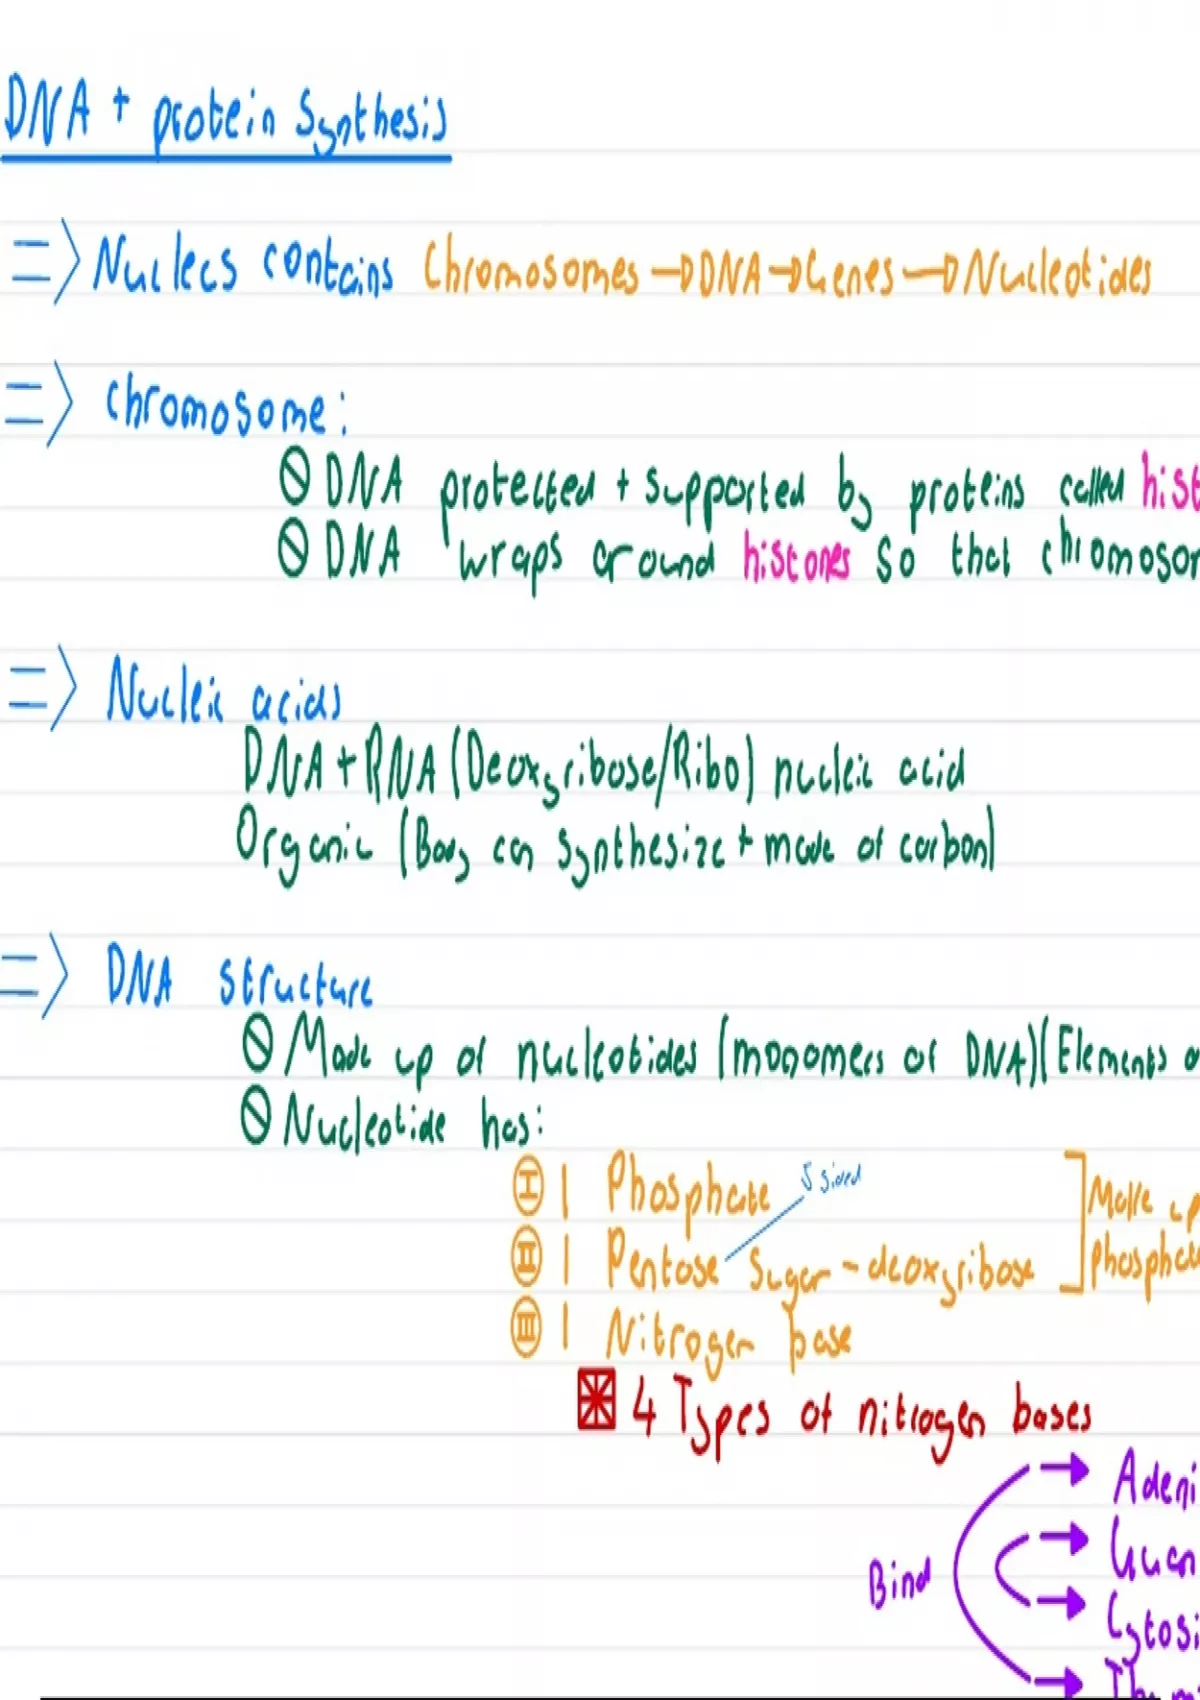 DNA + protein Synthesis
=> Nucleus contains Chromosomes → DNA → Genes → Nucleotides
=> Chromosome:
DNA protected + supported by proteins called hist
DNA wraps around histones so that chromosom
=> Nucleic acids
DNA + RNA (Deoxyribose/Ribo) nucleic acid
Organic (Body can synthesize + made of carbon)
=> DNA structure
Made up of nucleotides (monomers of DNA)(Elements o
Nucleotide has:
I 1 Phosphate 5 sided
II 1 Pentose sugar - deoxyribose
III 1 Nitrogen base
Make up
phosphate
4 Types of nitrogen bases
Bind
→ Adeni
→ Guan
→ Cytosi
→ Thymi